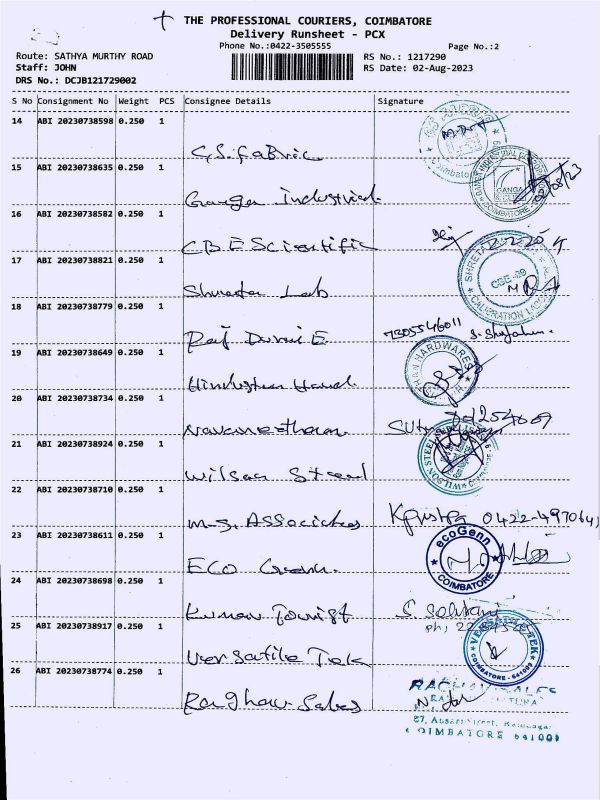 THE PROFESSIONAL COURIERS, COIMBATORE
Delivery Runsheet - PCX
Phone No.:0422-3505555 Page No.:2
Route: SATHYA MURTHY ROAD RS No.: 1217290
Staff: JOHN RS Date: 02-Aug-2023
DRS No.: DCJB121729002
S No Consignment No Weight PCS Consignee Details Signature
14 ABI 20230738598 0.250 1
G.S. fabric Coimbatore
15 ABI 20230738635 0.250 1
Ganga Industrial. GANGA COIMBATORE 02/08/23
16 ABI 20230738582 0.250 1
CBE Scientific
17 ABI 20230738821 0.250 1
Shreeta Lab CBE-09 CALIBRATION
18 ABI 20230738779 0.250 1
Raj Durai E 7305546011
19 ABI 20230738649 0.250 1
Hindustan Hard. HARDWARES
20 ABI 20230738734 0.250 1
Navaneetham.
21 ABI 20230738924 0.250 1
Wilson Steel WILSON STEEL
22 ABI 20230738710 0.250 1
M.S. Associates 0422-497064
23 ABI 20230738611 0.250 1
ECO Genn. ecoGenn COIMBATORE
24 ABI 20230738698 0.250 1
Kumar Tourist
25 ABI 20230738917 0.250 1
Versatile Tek VERSATILE TEK COIMBATORE - 641009
26 ABI 20230738774 0.250 1
Raghav Sales RAGHAV SALES
87, Ansari Street,
COIMBATORE 641009